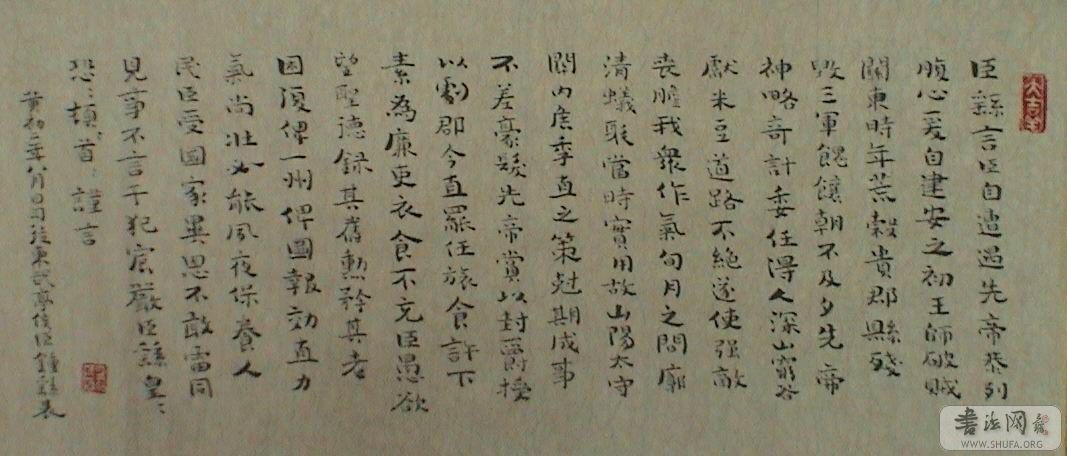 臣繇言臣自遭遇先帝忝列
腹心爰自建安之初王師破賊
關東時年荒穀貴郡縣殘
毀三軍餽饟朝不及夕先帝
神略奇計委任得人深山窮谷
獻米豆道路不絕遂使强敵
喪膽我衆作氣旬月之間廓
清蟻聚當時實用故山陽太守
關內侯季直之策尅期成事
不差豪髮先帝賞以封爵授
以劇郡今直罷任旅食許下
素為廉吏衣食不充臣愚欲
望聖德錄其舊勲矜其老
困復俾一州俾圖報効直力
氣尚壯必能夙夜保養人
民臣受國家異恩不敢雷同
見事不言干犯宸嚴臣繇皇〻
恐〻頓〻首〻謹言
黃初二年八月日司徒東武亭侯臣鍾繇表
書法网
WWW.SHUFA.ORG